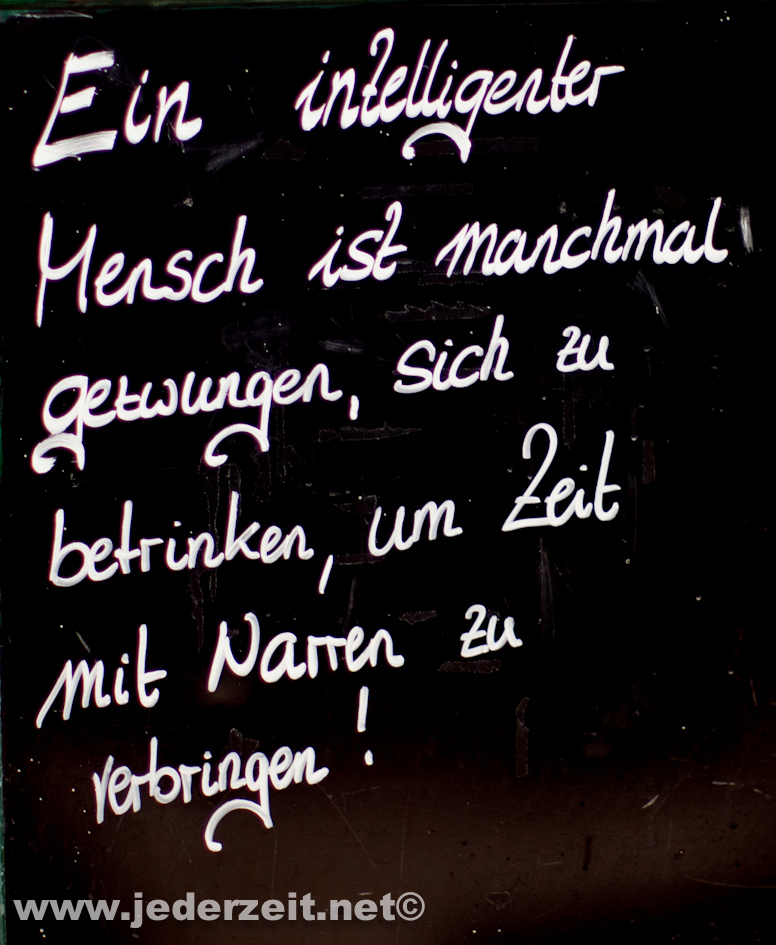 Ein intelligenter
Mensch ist manchmal
gezwungen, sich zu
betrinken, um Zeit
mit Narren zu
verbringen!
www.jederzeit.net©